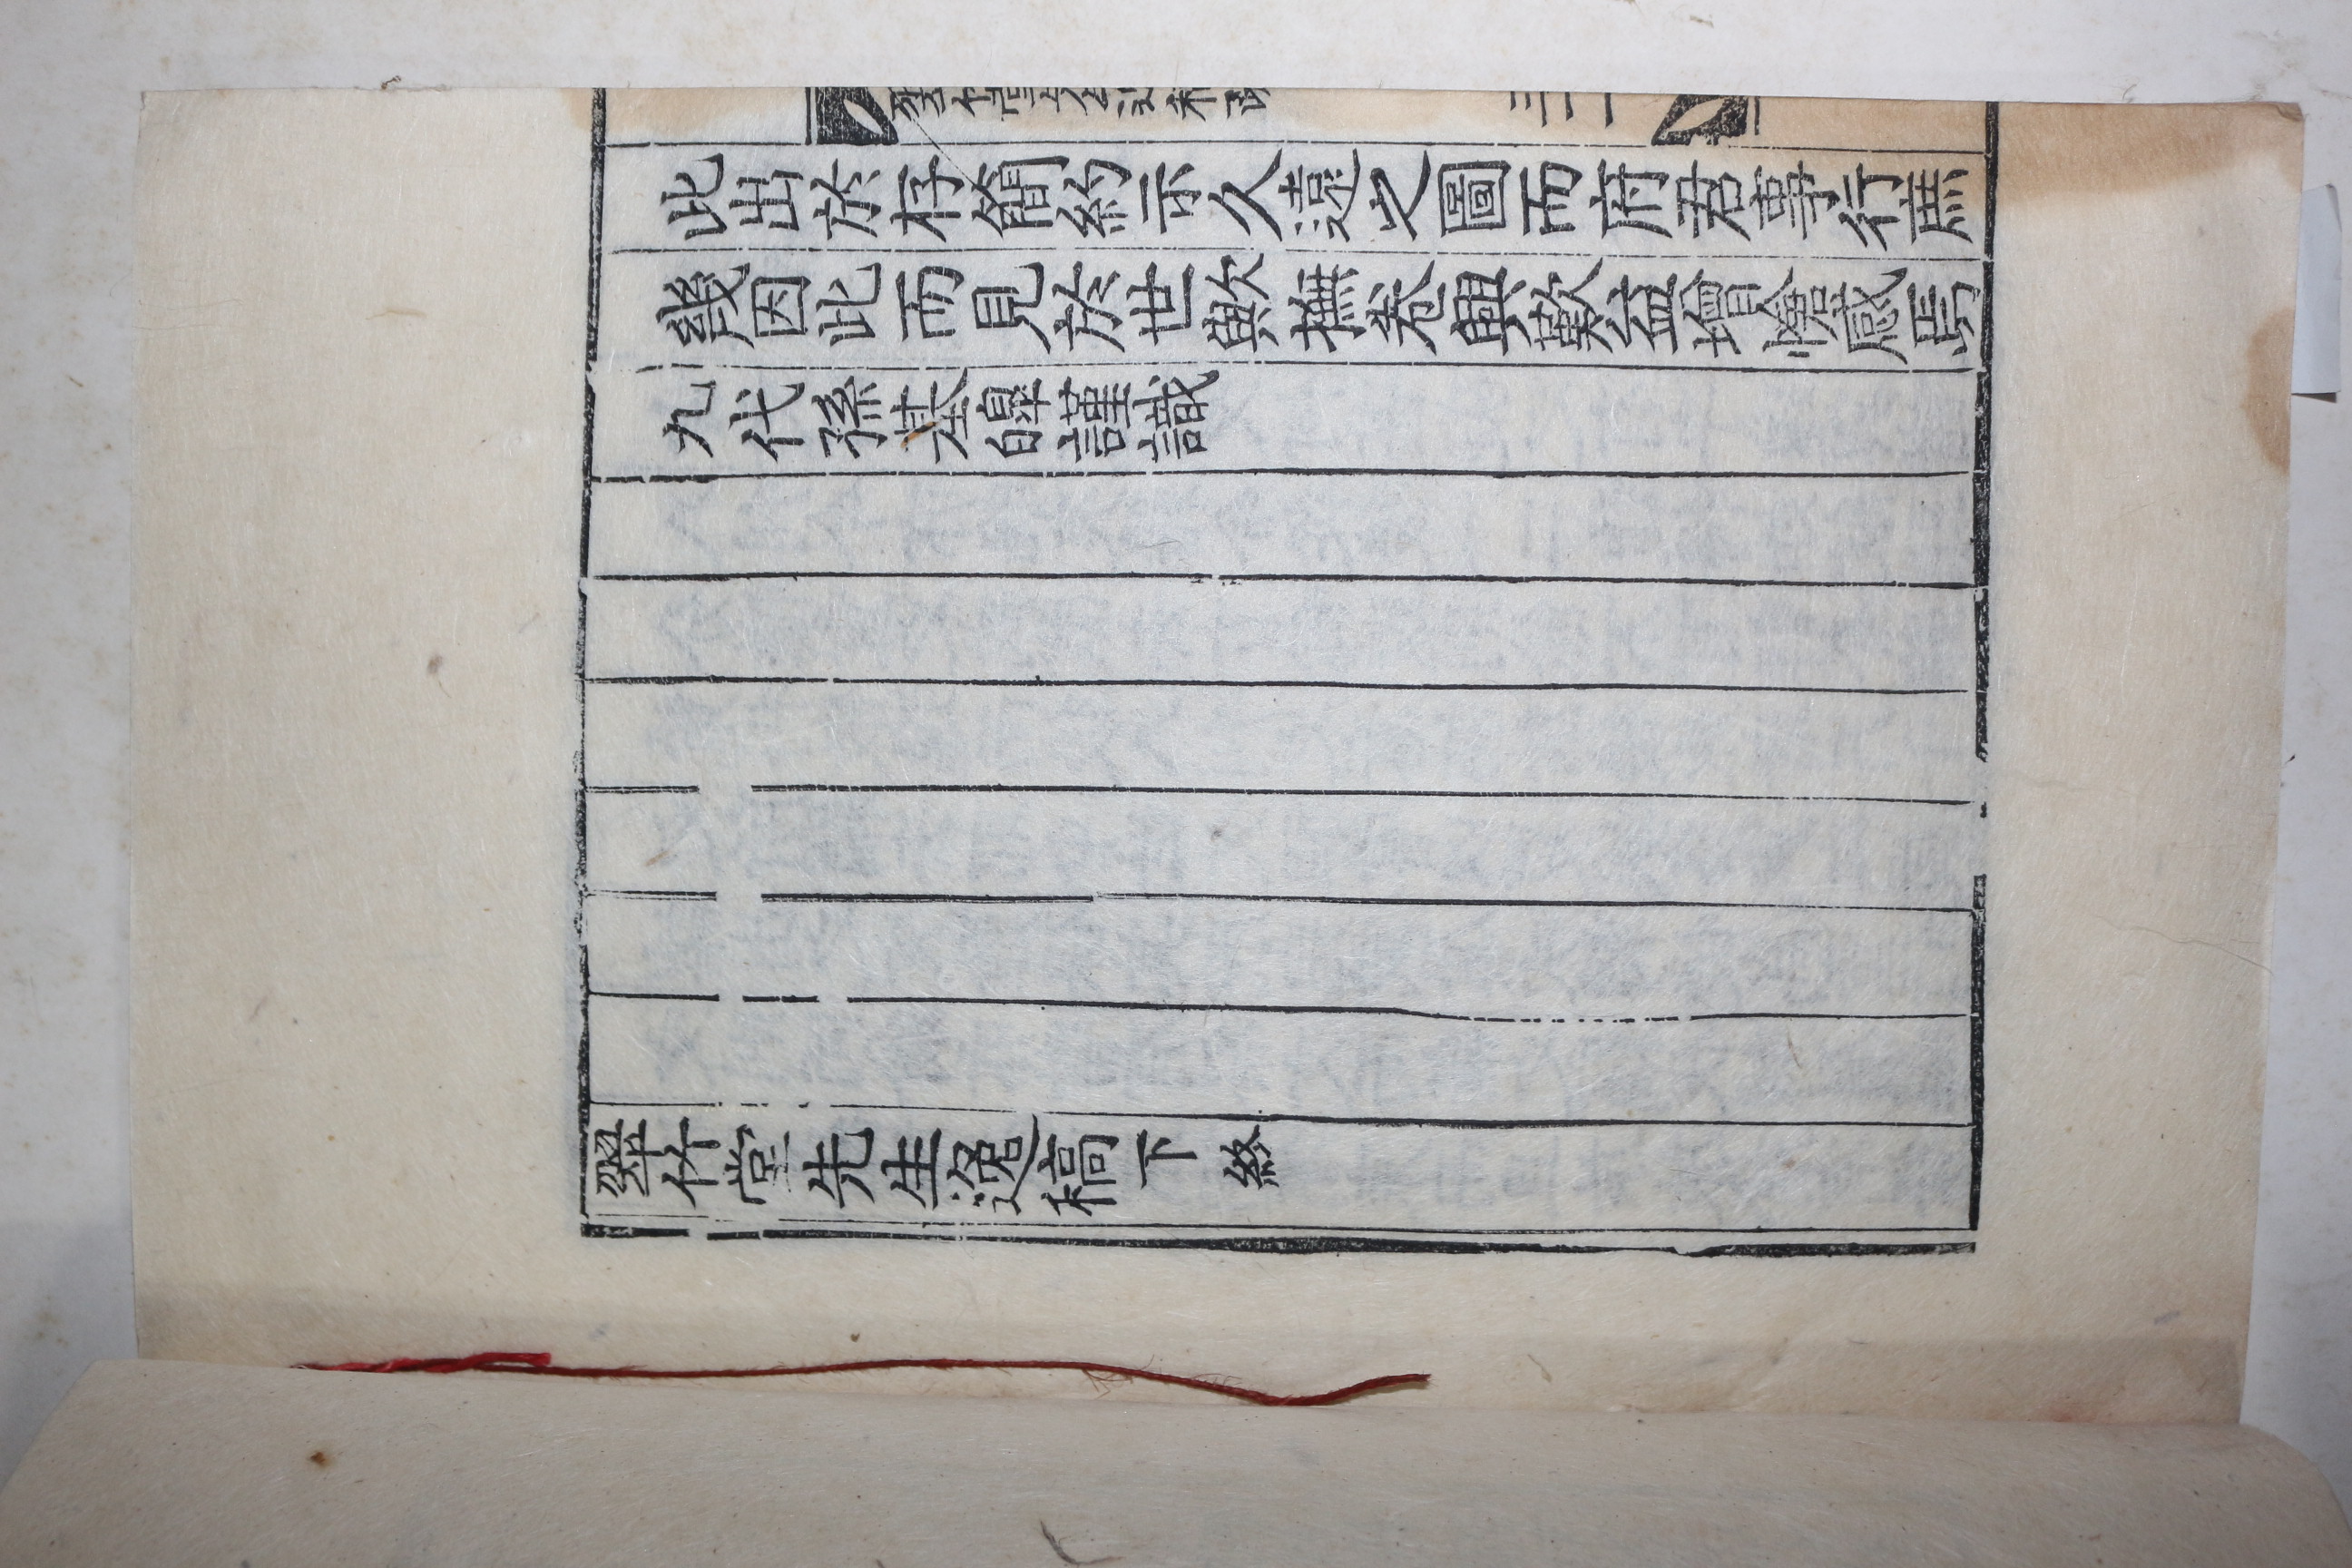 此出於存簡約示久遠之圖而府君事行庶
幾因此而見於世歟撫卷興歎益增愴感焉
九代孫基皡謹識
翠竹堂先生逸稿下 終